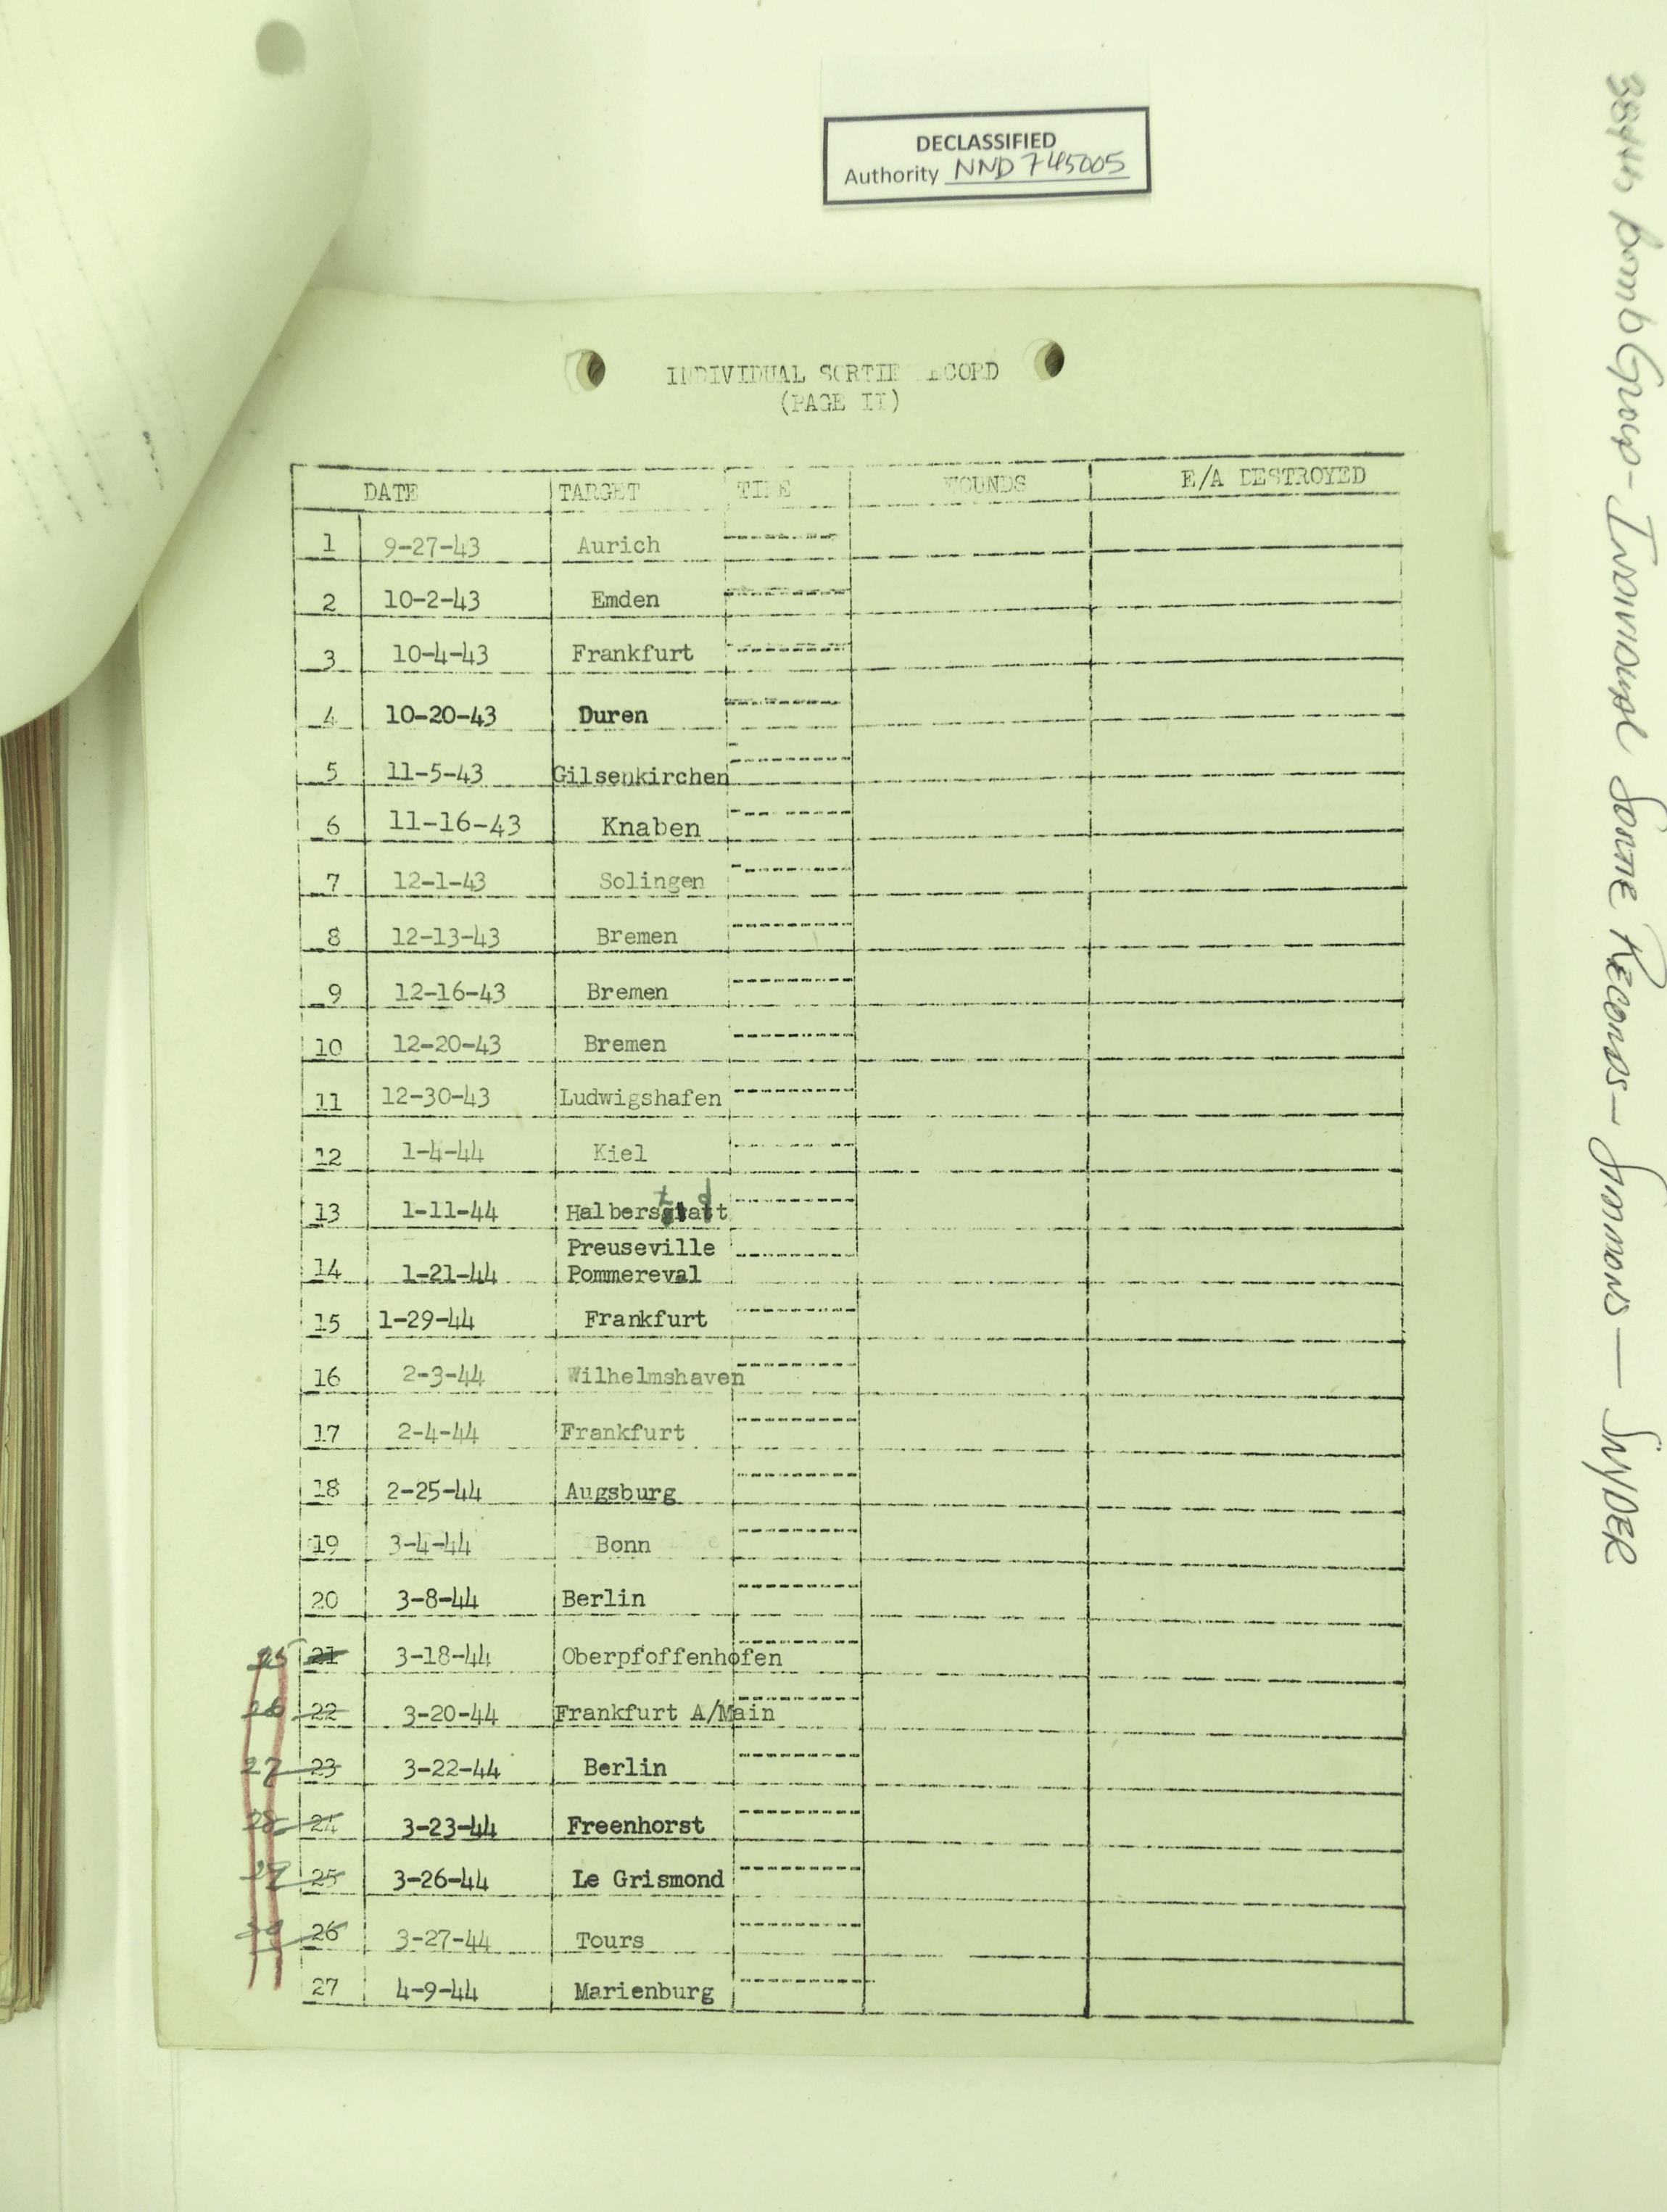 DECLASSIFIED
Authority NND 745005
INDIVIDUAL SORTIE RECORD
(PAGE II)
DATE TARGET TIME WOUNDS E/A DESTROYED
1 9-27-43 Aurich
2 10-2-43 Emden
3 10-4-43 Frankfurt
4 10-20-43 Duren
5 11-5-43 Gilsenkirchen
6 11-16-43 Knaben
7 12-1-43 Solingen
8 12-13-43 Bremen
9 12-16-43 Bremen
10 12-20-43 Bremen
11 12-30-43 Ludwigshafen
12 1-4-44 Kiel
13 1-11-44 Halberstadt
Preuseville
14 1-21-44 Pommereval
15 1-29-44 Frankfurt
16 2-3-44 Wilhelmshaven
17 2-4-44 Frankfurt
18 2-25-44 Augsburg
19 3-4-44 Bonn
20 3-8-44 Berlin
25 21 3-18-44 Oberpfoffenhofen
26 22 3-20-44 Frankfurt A/Main
27 23 3-22-44 Berlin
28 24 3-23-44 Freenhorst
29 25 3-26-44 Le Grismond
30 26 3-27-44 Tours
27 4-9-44 Marienburg
384th Bomb Group - Individual Sortie Records - Simmons - Snyder